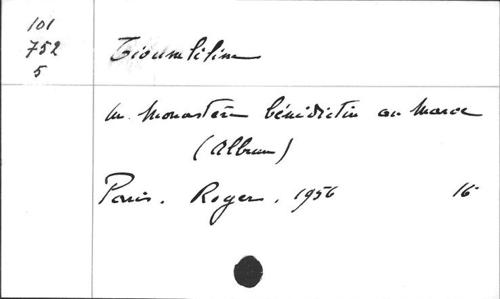 101
752
5
Tioumliline
un monastère bénédictin au Maroc
(Album)
Paris. Roger. 1956 16°